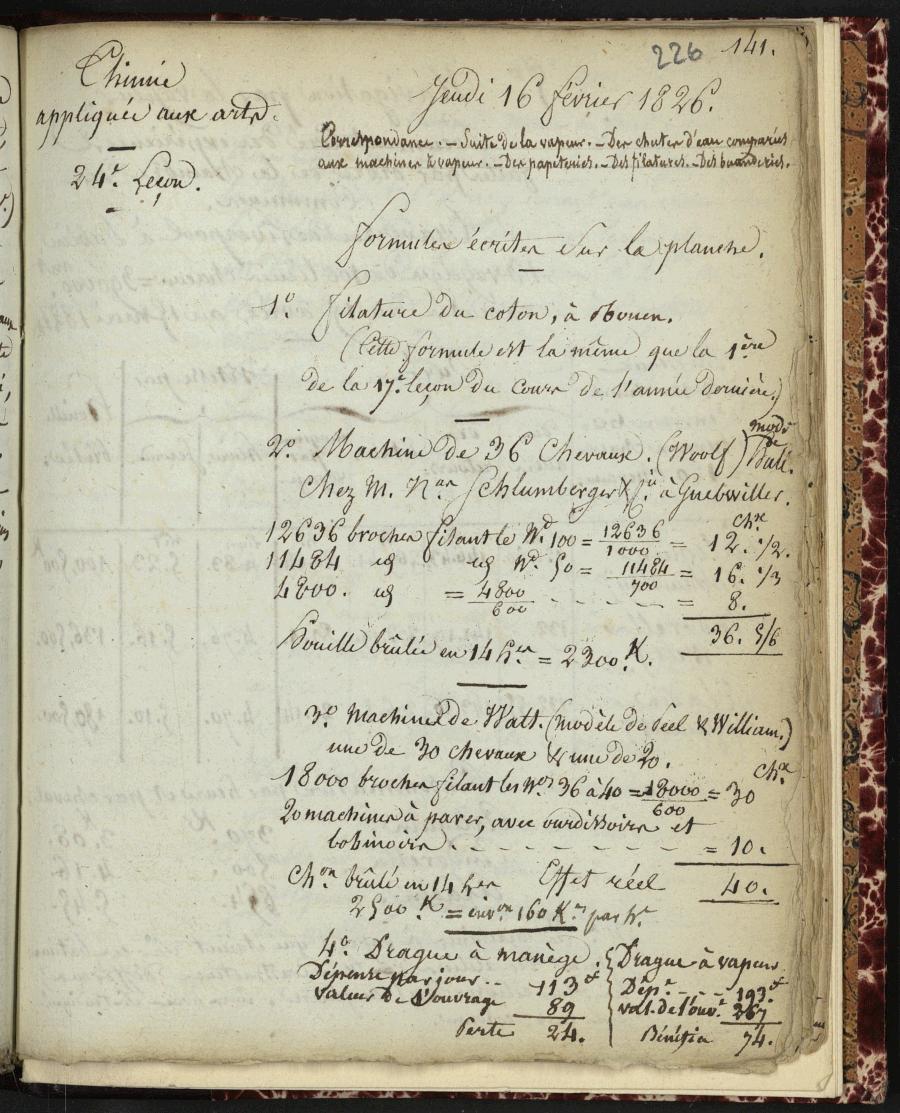 226 141.
Chimie
appliquée aux arts.
24e. Leçon.
Jeudi 16 février 1826.
Correspondance. – Suite de la vapeur. – Des chutes d'eau comparées
aux machines à vapeur. – Des papeteries. – Des filatures. – Des buanderies.
formules écrites sur la planche.
1o. filature du coton, à Rouen.
(Cette formule est la même que la 1ère
de la 17e leçon du cours de l'année dernière.)
2o. Machine de 36 Chevaux. (Woolf) modèle Hall.
Chez M. Nas Schlumberger & Cie à Guebwiller.
12636 broches filant le No. 100 = 12636/1000 = 12. 1/2. chx
11484 id id No. 50 = 11484/700 = 16. 1/3
4800. id = 4800/600 - - - - - = 8.
36. 5/6
Houille brûlée en 14 hes = 2300 K.
3o Machines de Watt. (modèle de Peel & William.)
une de 30 chevaux & une de 20.
18000 broches filant les Nos 36 à 40 = 18000/600 = 30 chx
20 machines à parer, avec ourdissoirs et
bobinoirs. - - - - - - = 10.
Chon brûlé en 14 hes Effet réel 40.
2500 K = envon 160 Kes par he
4o Drague à manège. Drague à vapeur
Dépense par jour - - 113f Dépe - - - 193f
valeur de l'ouvrage 89 val. de l'ouve 267
Perte 24. Bénéfice 74.